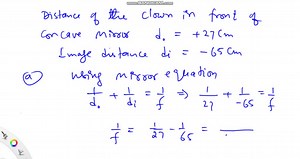 Distance of the clown in front of
concave mirror d₀ = +27cm
Image distance di = -65cm
(a) Using mirror equation
1/d₀ + 1/di = 1/f ⇒ 1/27 + 1/-65 = 1/f
1/f = 1/27 - 1/65 =